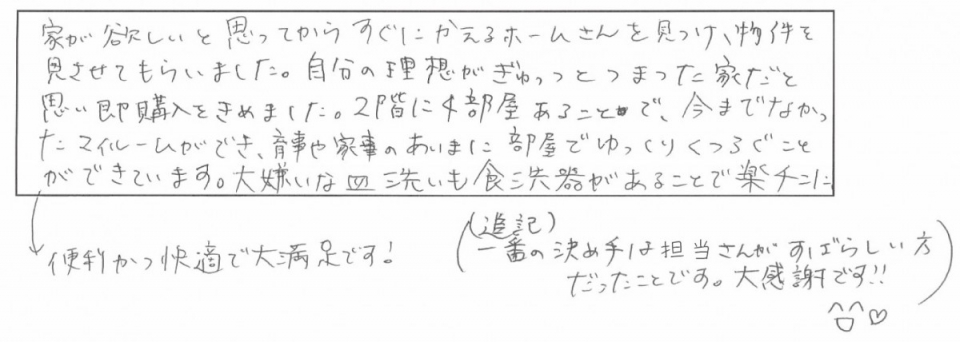 家が欲しいと思ってからすぐにかえるホームさんを見つけ、物件を
見させてもらいました。自分の理想がぎゅっとつまった家だと
思い即購入をきめました。2階に4部屋あることで、今までなかっ
たマイルームができ、育事や家事のあいまに部屋でゆっくりくつろぐこと
ができています。大嫌いな皿洗いも食洗器があることで楽チンに
便利かつ快適で大満足です!
(追記)
一番の決め手は担当さんがすばらしい方
だったことです。大感謝です!!